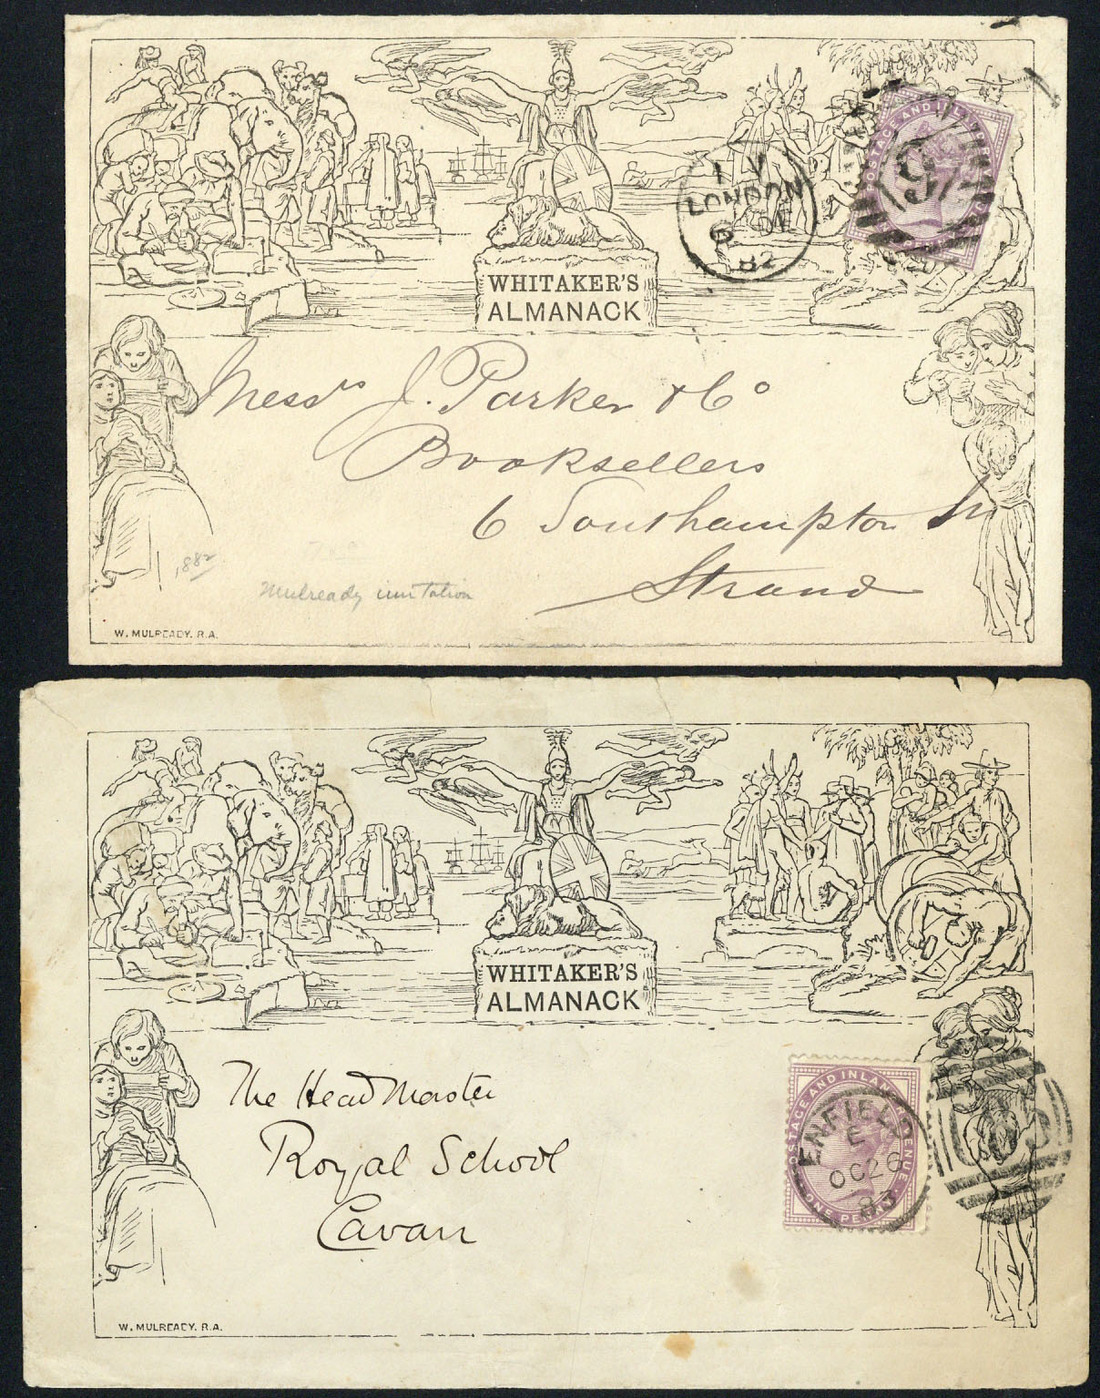 POSTAGE AND INL
I V
LONDON
82
WHITAKER'S
ALMANACK
Messrs J. Parker & Co
Booksellers
6 Southampton St
Strand
1882
Mulready imitation
W. MULREADY. R.A.
WHITAKER'S
ALMANACK
The Head Master
Royal School
Cavan
POSTAGE AND INLAND REVENUE
ONE PENNY
ENFIELD
E
OC 26
83
W. MULREADY. R.A.